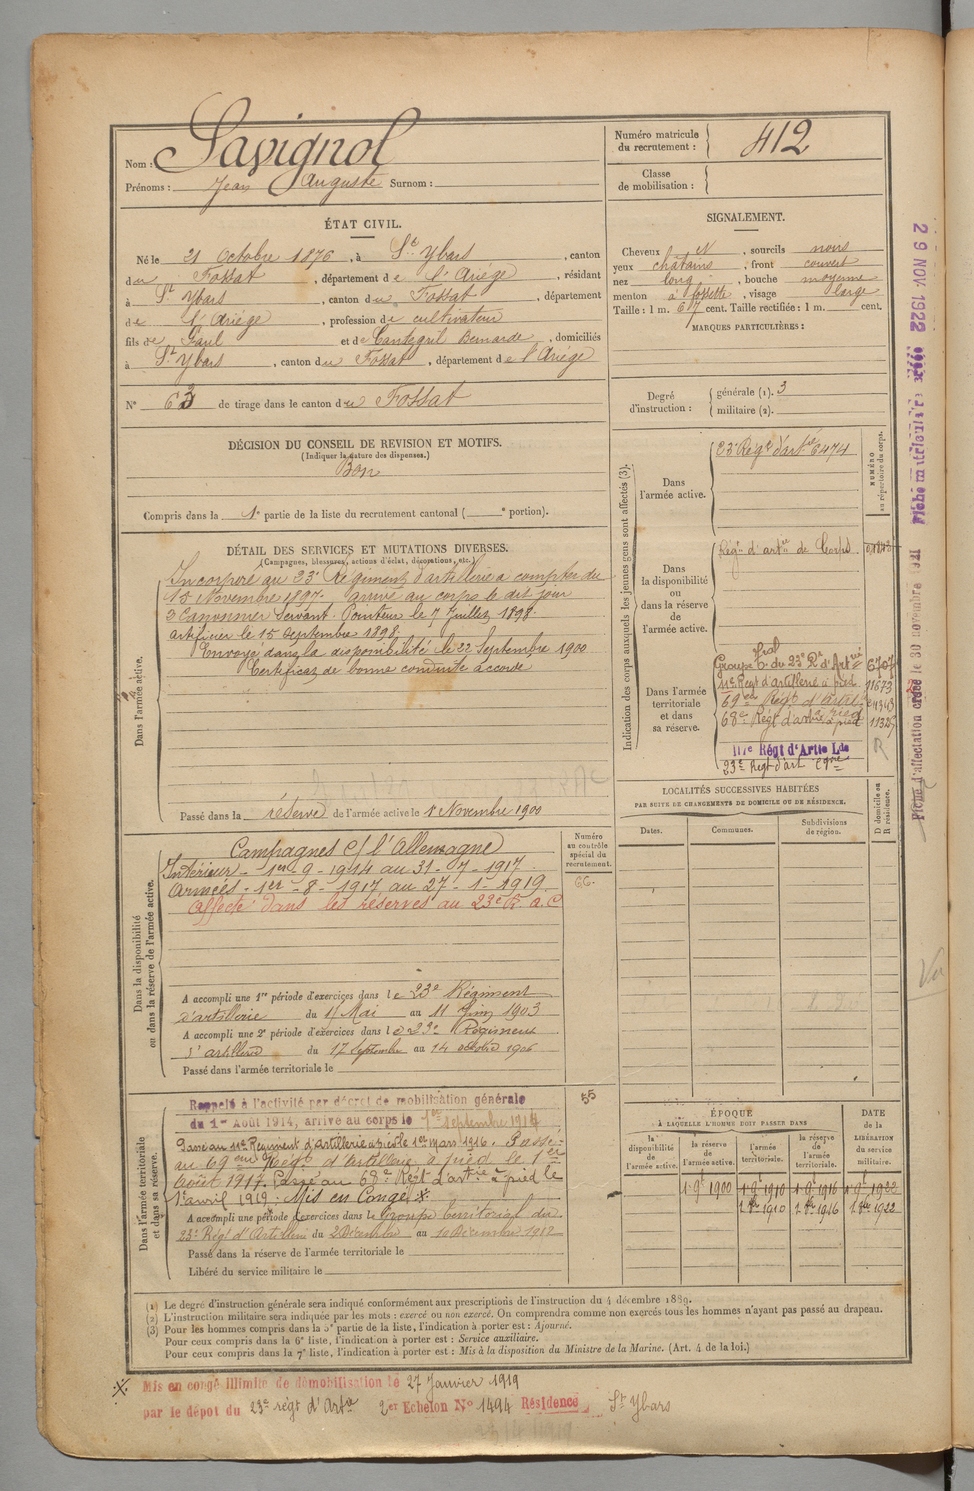 Nom : Savignol
Prénoms : Jean Auguste Surnom :
Numéro matricule du recrutement : 412
Classe de mobilisation :
ÉTAT CIVIL.
Né le 21 Octobre 1876, à St Ybars, canton
du Fossat, département de l'Ariège, résidant
à St Ybars, canton du Fossat, département
de l'Ariège, profession de cultivateur
fils de Paul et de Cantegril Bernarde, domiciliés
à St Ybars, canton du Fossat, département de l'Ariège
N° 63 de tirage dans le canton du Fossat
SIGNALEMENT.
Cheveux N, sourcils noirs
yeux chatains, front couvert
nez long, bouche moyenne
menton à fossette, visage large
Taille : 1 m. 67 cent. Taille rectifiée : 1 m. cent.
MARQUES PARTICULIÈRES :
Degré d'instruction : générale (1). 3
militaire (2).
DÉCISION DU CONSEIL DE REVISION ET MOTIFS.
(Indiquer la nature des dispenses.)
Bon
Compris dans la 1e partie de la liste du recrutement cantonal ( e portion).
DÉTAIL DES SERVICES ET MUTATIONS DIVERSES.
(Campagnes, blessures, actions d'éclat, décorations, etc.)
Dans l'armée active.
Incorporé au 23e Régiment d'artillerie à compter du
15 Novembre 1897. arrivé au corps le dit jour
2e Canonnier Servant. Pointeur le 7 Juillet 1898.
artificier le 15 Septembre 1898.
Envoyé dans la disponibilité le 22 Septembre 1900
Certificat de bonne conduite accordé
Passé dans la réserve de l'armée active le 1 Novembre 1900
Indication des corps auxquels les jeunes gens sont affectés (3).
NUMÉRO au répertoire du corps.
Dans l'armée active.
23e Régt d'artie 6474
Dans la disponibilité ou dans la réserve de l'armée active.
Régt d'artie de Corps
Dans l'armée territoriale et dans sa réserve.
Groupe trial du 23e Rt d'Artie 6707
11e Régt d'artillerie à pied 11673
69e Régt d'Artie
68e Régt d'artie à pied 11329
117e Régt d'Artie Lde
23e Régt d'art
R
LOCALITÉS SUCCESSIVES HABITÉES
PAR SUITE DE CHANGEMENTS DE DOMICILE OU DE RÉSIDENCE.
Dates. Communes. Subdivisions de région. D domicile ou R résidence.
Dans la disponibilité ou dans la réserve de l'armée active.
Numéro au contrôle spécial du recrutement.
66.
Campagnes c/ l'Allemagne
Intérieur - 1er - 9 - 1914 au 31 - 7 - 1917
Armées - 1er - 8 - 1917 au 27 - 1 - 1919
Affecté dans les réserves au 23e R. a. C
A accompli une 1re période d'exercices dans le 23e Régiment
d'artillerie du 11 Mai au 11 Juin 1903
A accompli une 2e période d'exercices dans le 23e Régiment
d'artillerie du 17 Septembre au 14 octobre 1906
Passé dans l'armée territoriale le
Dans l'armée territoriale et dans sa réserve.
55
Rappelé à l'activité par décret de mobilisation générale
du 1er Août 1914, arrivé au corps le 1er septembre 1914
Passé au 11e Régiment d'artillerie à pied le 1er mars 1916. Passé
au 69eme Régt d'artillerie à pied le 1er
Août 1917. Passé au 68e Régt d'artie à pied le
1er avril 1919. Mis en Congé *
A accompli une période d'exercices dans le Groupe territorial du
23e Régt d'Artillerie du 2 Décembre au 10 Décembre 1912
Passé dans la réserve de l'armée territoriale le
Libéré du service militaire le
ÉPOQUE
À LAQUELLE L'HOMME DOIT PASSER DANS
DATE de la LIBÉRATION du service militaire.
la disponibilité de l'armée active. la réserve de l'armée active. l'armée territoriale. la réserve de l'armée territoriale.
1 9e 1900 1 9e 1910 1 9e 1916 1 9e 1922
1 8re 1910 1 8re 1916 1 8re 1922
(1) Le degré d'instruction générale sera indiqué conformément aux prescriptions de l'instruction du 4 décembre 1889.
(2) L'instruction militaire sera indiquée par les mots : exercé ou non exercé. On comprendra comme non exercés tous les hommes n'ayant pas passé au drapeau.
(3) Pour les hommes compris dans la 5e partie de la liste, l'indication à porter est : Ajourné.
Pour ceux compris dans la 6e liste, l'indication à porter est : Service auxiliaire.
Pour ceux compris dans la 7e liste, l'indication à porter est : Mis à la disposition du Ministre de la Marine. (Art. 4 de la loi.)
Mis en congé illimité de démobilisation le 27 Janvier 1919
par le dépôt du 23e régt d'Artie 2er Echelon N° 1494 Résidence St Ybars
29 NOV. 1922
Fiche d'affectation créée le 30 novembre
Vu